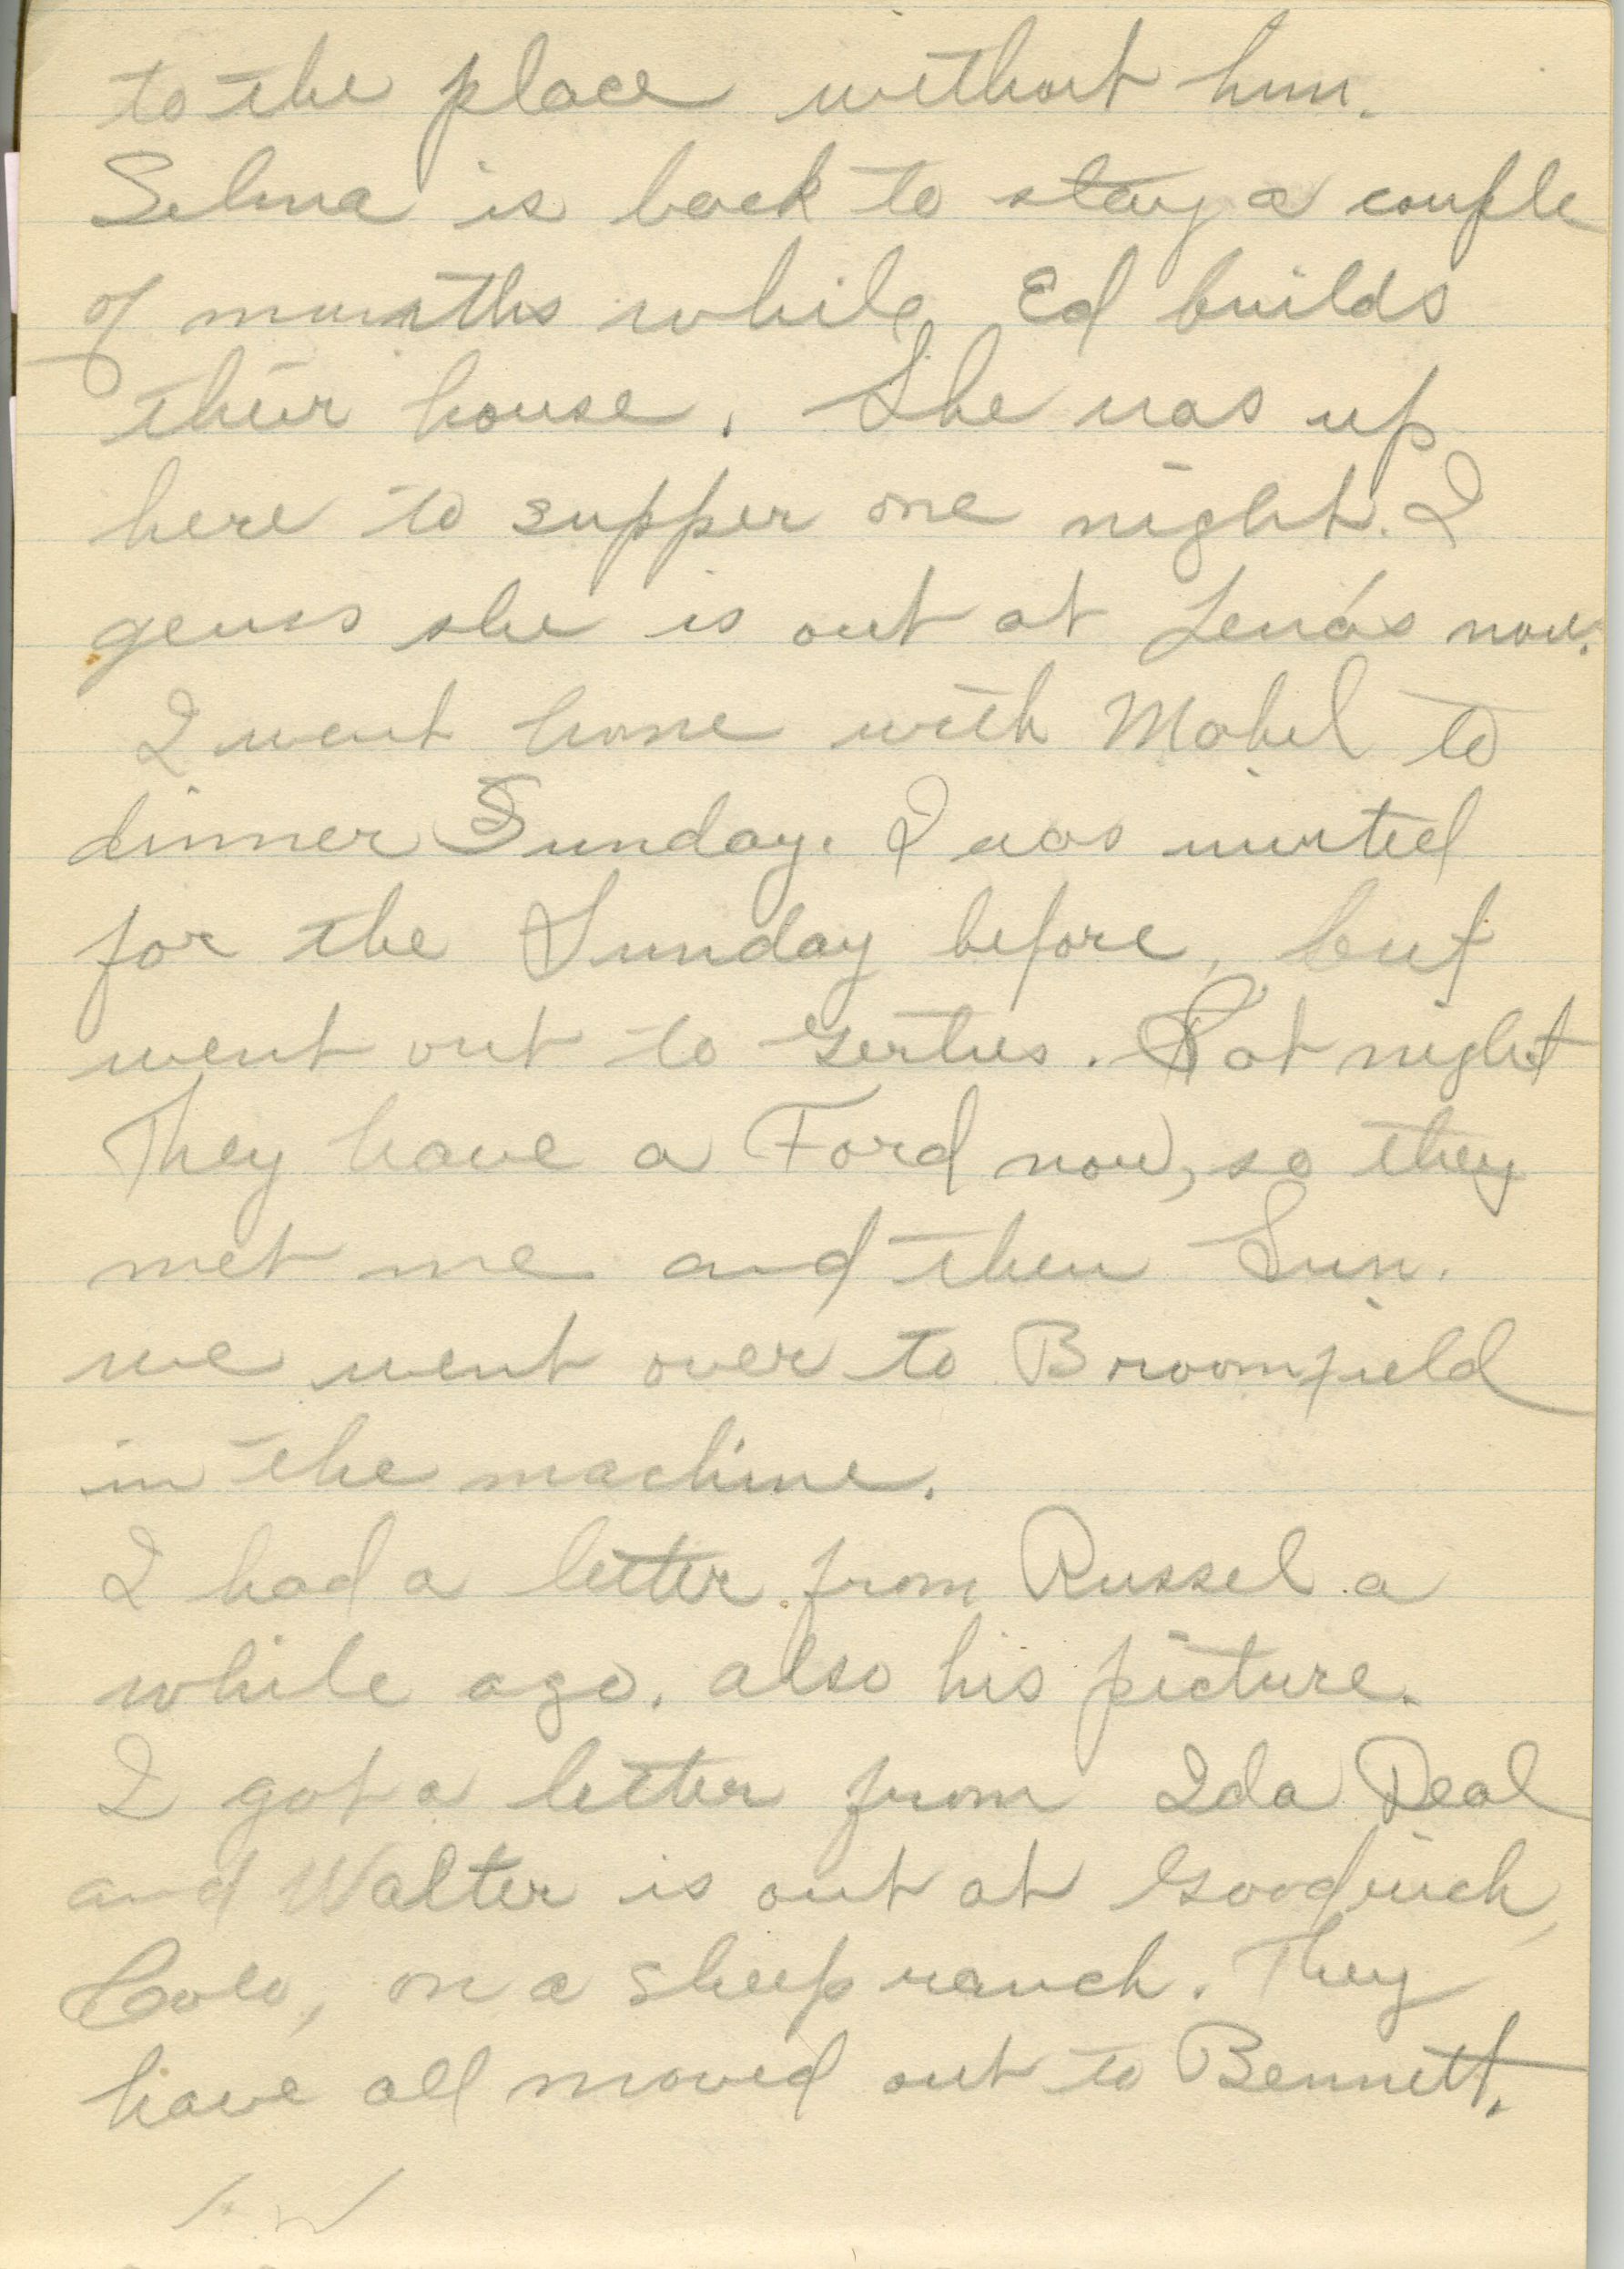 to the place without him.
Selma is back to stay a couple
of months while Ed builds
their house. She was up
here to supper one night. I
geuss she is out at Lena's now.
I went home with Mabel to
dinner Sunday. I was invited
for the Sunday before, but
went out to Gerties. Sat night
They have a Ford now, so they
met me and then Sun.
we went over to Broomfield
in the machine.
I had a letter from Russel a
while ago. also his picture.
I got a letter from Ida Deal
and Walter is out at Goodrich,
Colo, on a sheep ranch. They
have all moved out to Bennett.